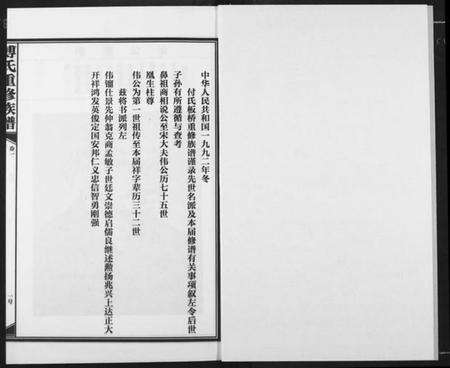 中华人民共和国一九九二年冬
付氏板桥重修族谱谨录先世名派及本届修谱有关事项叙左令后世
子孙有所遵循与查考
鼻祖商相说公至宋大夫伟公历七十五世
胤生柱尊
伟公为第一世祖传至本届祥字辈历三十二世
兹将书派列左
伟镏仕景先仲翁克商孟敏子世廷文崇德启儒良继述勲扬兆兴上达正大
开祥鸿发英俊定国安邦仁义忠信智勇刚强
傅氏重修族谱